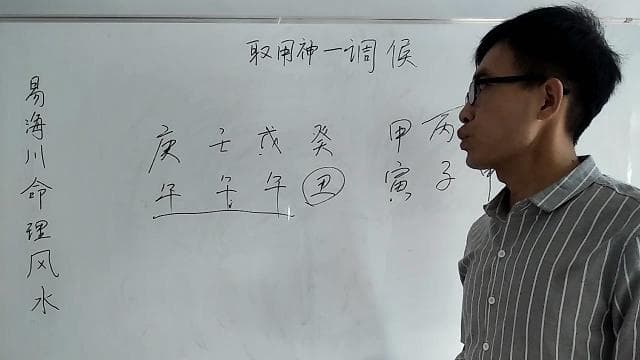 取用神—调候
庚 壬 戊 癸 甲 丙
午 午 午 丑 寅 子
易海川命理风水